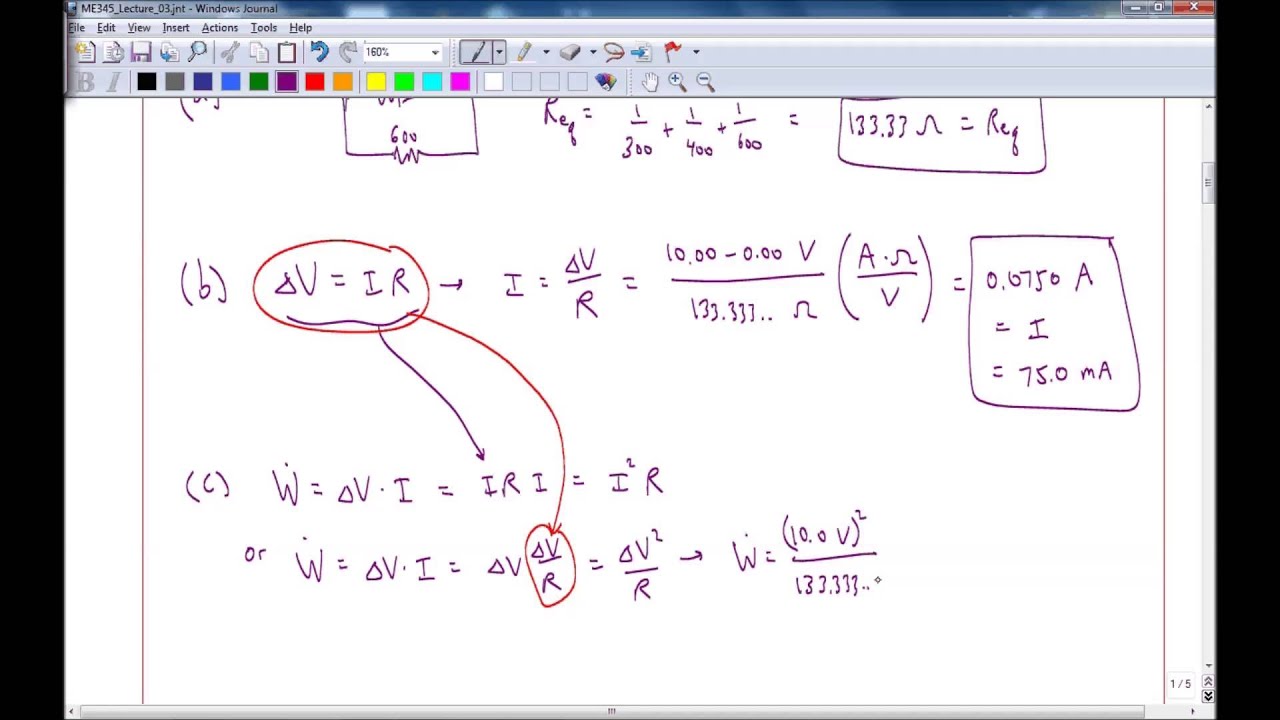 ME345_Lecture_03.jnt - Windows Journal
File Edit View Insert Actions Tools Help
160%
B I
600
Req = 1/300 + 1/400 + 1/600 = 133.33 Ω = Req
(b) ΔV = I R → I = ΔV/R = 10.00 - 0.00 V / 133.333.. Ω (A·Ω/V) = 0.0750 A
= I
= 75.0 mA
(c) Ẇ = ΔV · I = I R I = I² R
or Ẇ = ΔV · I = ΔV ΔV/R = ΔV²/R → Ẇ = (10.0 V)²/133.333..
1 / 5